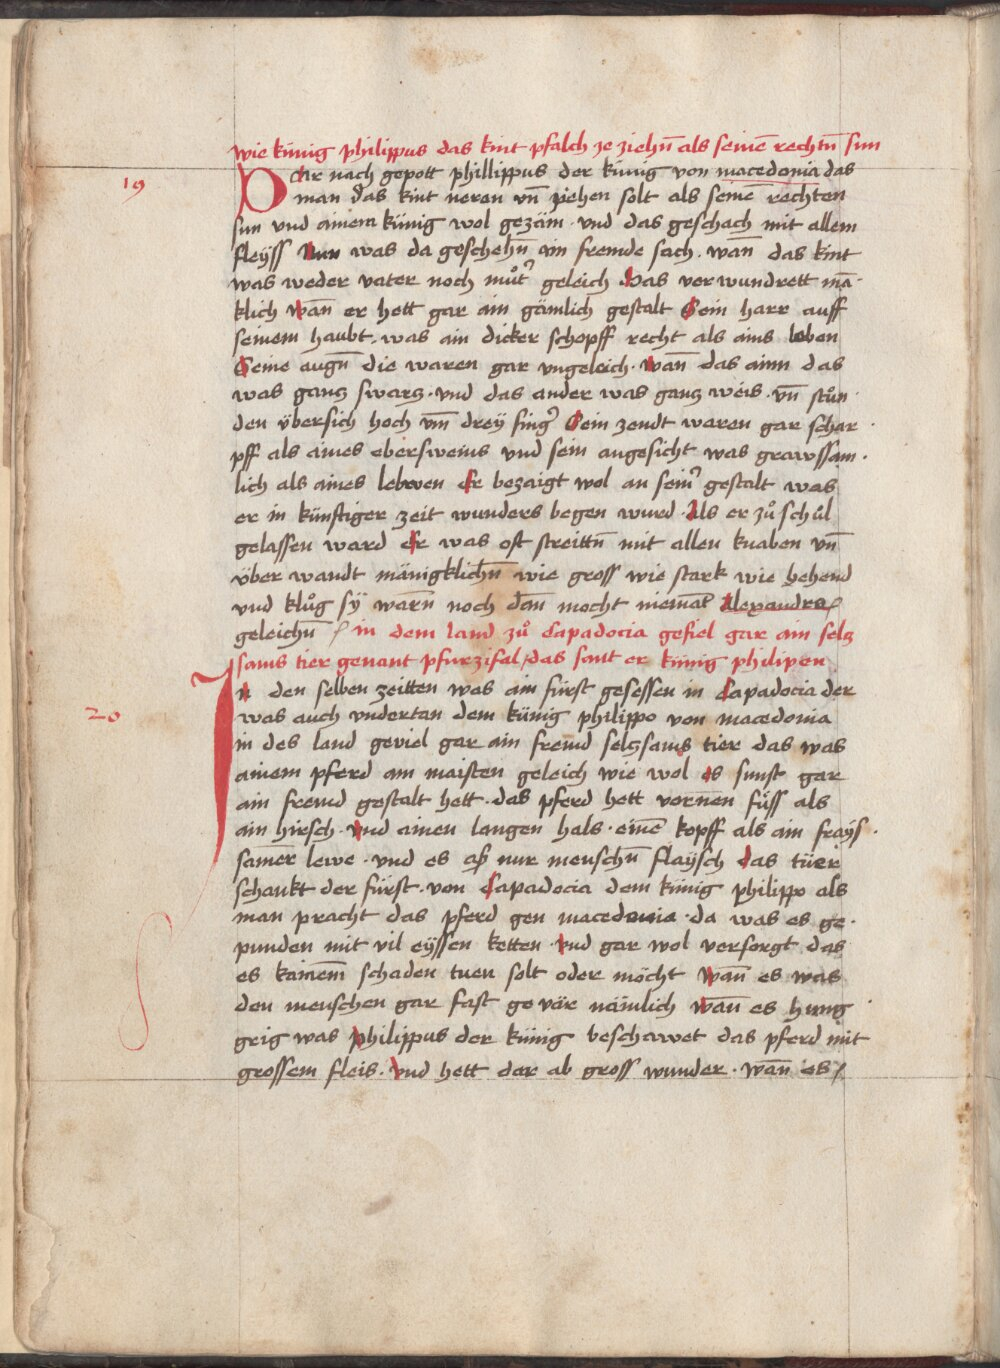 wie künig philippus das kint pfalch ze ziehn̄ als seinē rechtn̄ sun
19
Dar nach gepott phillippus der künig von macedonia das
man das kint neren vn̄ ziehen solt als seinē rechten
sun vnd ainem künig wol gezäm · vnd das geschach mit allem
fleyss Nun was da geschehn̄ ain fremde sach . wan̄ das kint
was weder vater noch můtˀ geleich Das verwundrett mā·
klich wan̄ er hett gar ain gämlich gestalt Sein harr auff
seinem haubt . was ain dicker schopff recht als ains leben
Seine augn̄ die waren gar vngeleich · wan̄ das ainn das
was gancz swarcz · vnd das ander was gancz weis · vn̄ stůn·
den übersich hoch vm̄ drey fingˀ Sein zendt waren gar schar·
pff als aines eberswenis vnd sein angesicht was grawssam·
lich als aines lebwen Er bezaigt wol an seinˀ gestalt was
er in künftiger zeit wunders begen wurd · Als er zů schůl
gelassen ward er was oft streittn̄ mit allen knaben vn̄
über wandt mänigklichn̄ wie gross wie stark wie behend
vnd klůg sy warn̄ noch dan̄ mocht niemāt Alexandro
geleichn̄ / in dem land zů Capadocia gefiel gar ain selcz
sams tier genant pfurzifal / das sant er künig philipen
20
In den selben zeitten was ain fürst gesessen in Capadocia der
was auch vndertan dem künig philippo von macedonia
in des land geviel gar ain fremd selczsams tier das was
ainem pferd am maisten geleich wie wol es sunst gar
ain fremd gestalt hett · das pferd hett vornen füss als
ain hirsch · vnd ainen langen hals · einē kopff als ain frays·
samer lewe · vnd es aß nur menschn̄ flaysch das tüer
schankt der fürst · von Capadocia dem künig philippo als
man pracht das pferd gen macedonia · da was es ge·
punden mit vil eyssen ketten vnd gar wol versorgt das
es kainem̄ schaden tuen solt oder möcht wan̄ es was
den menschen gar fast ge vär nämlich wan̄ es hung·
grig was philippus der künig beschawet das pferd mit
grossem fleis · vnd hett dar ab gross wunder · wan̄ es /